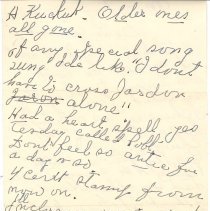 A Kuckuk. Older ones
all gone.
If any special song
sung I'd like "I don't
have to cross Jordon
Jaron alone"
Had a heart spell yes
terday called Polly
Don't feel so active for
a day or so
4 cent stamp from
now on.